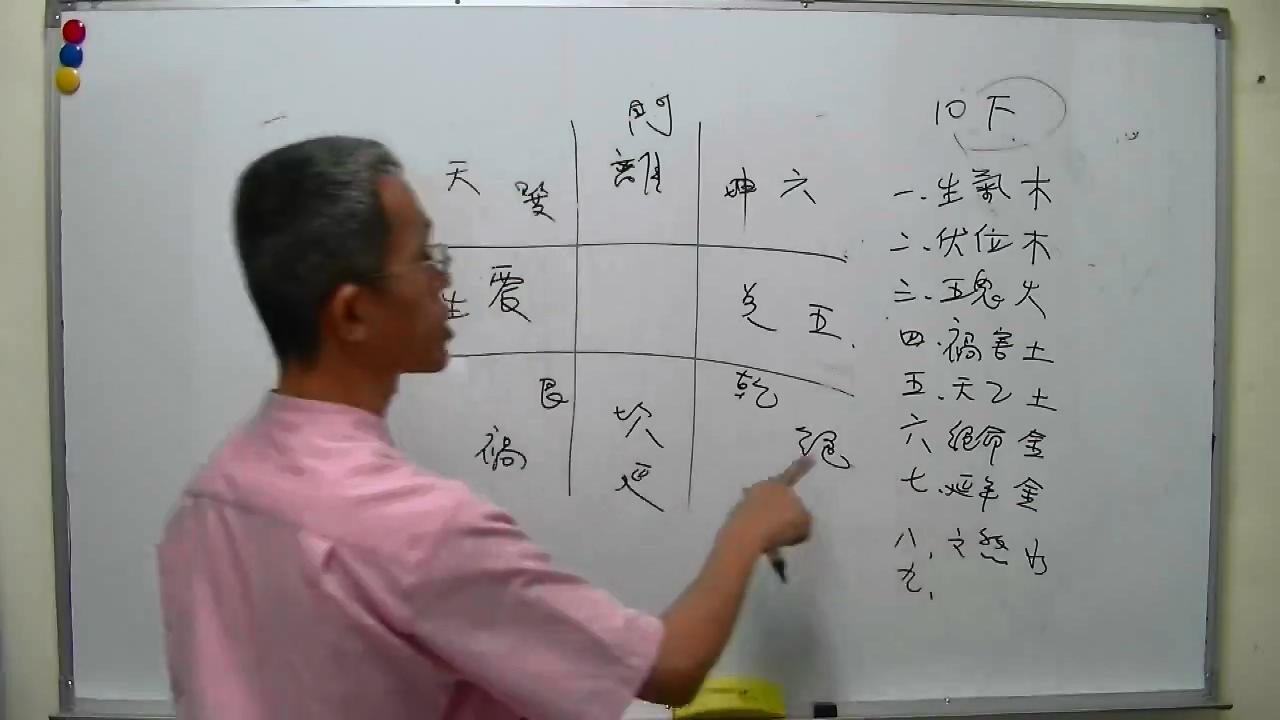 門
離
天 巽
坤 六
生 震
兌 五
艮
禍
坎
延
乾
絕
10下
一.生氣木
二.伏位木
三.五鬼火
四.禍害土
五.天乙土
六 絕命金
七.延年金
八.文煞水
九.